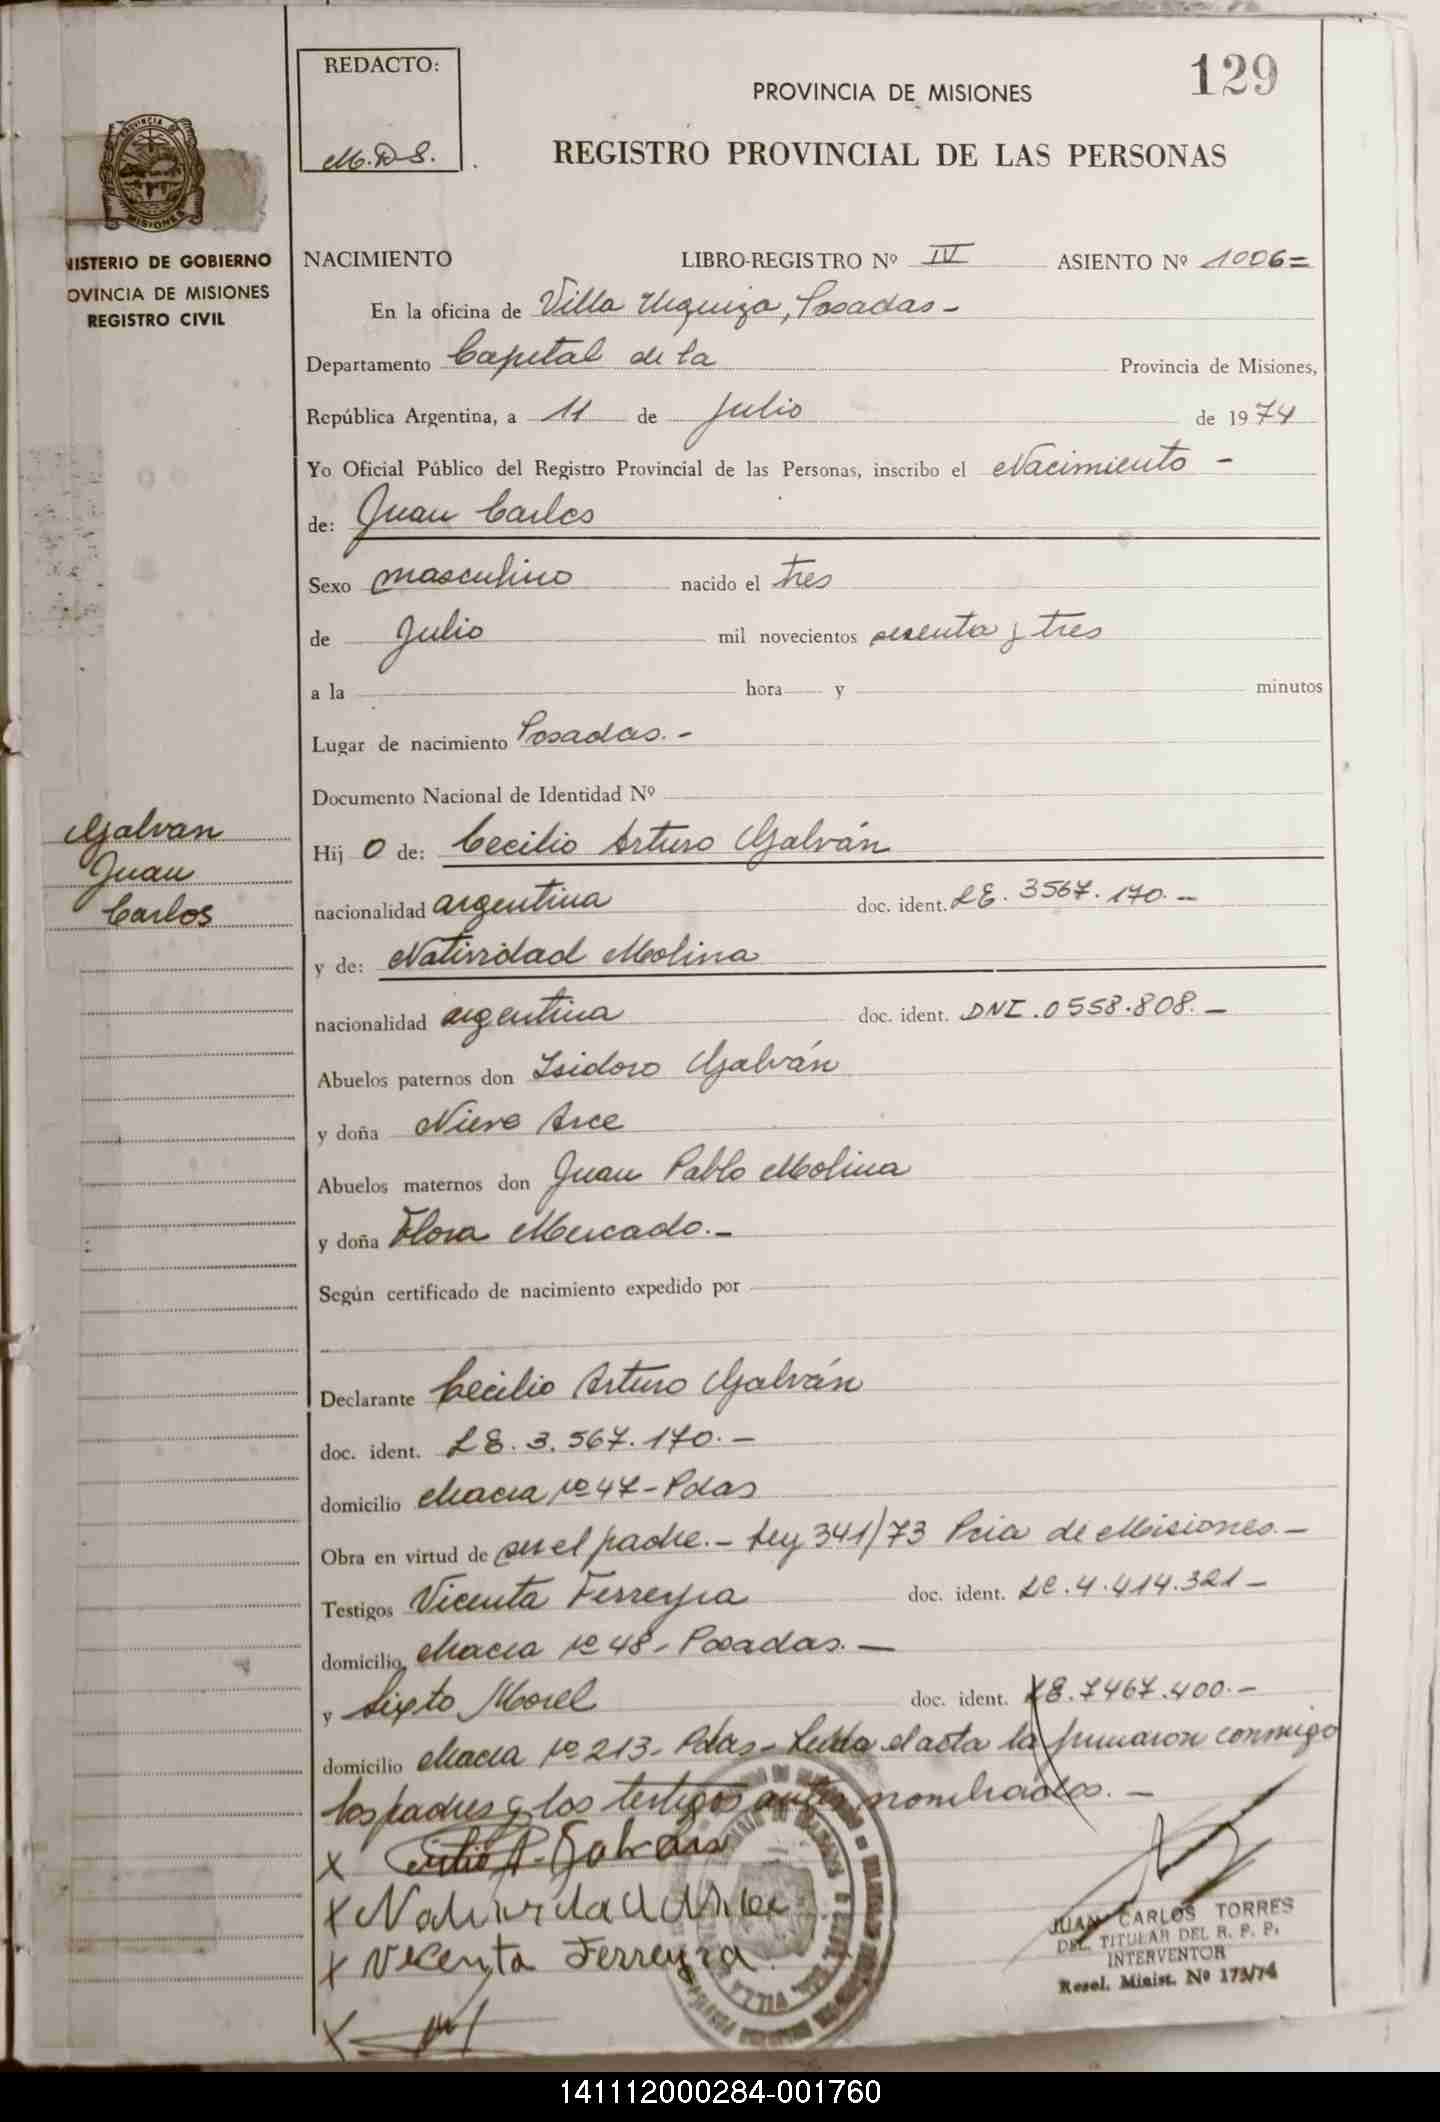 129
REDACTO:
M.D.S.
PROVINCIA DE MISIONES
REGISTRO PROVINCIAL DE LAS PERSONAS
PROVINCIA DE
MISIONES
NISTERIO DE GOBIERNO
OVINCIA DE MISIONES
REGISTRO CIVIL
NACIMIENTO LIBRO-REGISTRO Nº IV ASIENTO Nº 1006=
En la oficina de Villa Urquiza, Posadas-
Departamento Capital de la Provincia de Misiones,
República Argentina, a 11 de Julio de 1974
Yo Oficial Público del Registro Provincial de las Personas, inscribo el Nacimiento -
de: Juan Carlos
Sexo masculino nacido el tres
de Julio mil novecientos sesenta y tres
a la hora y minutos
Lugar de nacimiento Posadas.-
Documento Nacional de Identidad Nº
Galvan
Juan
Carlos
Hij o de: Cecilio Arturo Galván
nacionalidad argentina doc. ident. LE. 3567.170.-
y de: Natividad Molina
nacionalidad argentina doc. ident. DNI.0558.808.-
Abuelos paternos don Isidoro Galván
y doña Nieve Arce
Abuelos maternos don Juan Pablo Molina
y doña Flora Mercado.-
Según certificado de nacimiento expedido por
Declarante Cecilio Arturo Galván
doc. ident. LE.3.567.170.-
domicilio chacra nº 47-Pdas
Obra en virtud de ser el padre.- Ley 341/73 Pcia de Misiones.-
Testigos Vicenta Ferreyra doc. ident. LC.4.414.321-
domicilio chacra nº 48- Posadas.-
y Sixto Morel doc. ident. LE.7467.400.-
domicilio chacra nº 213- Pdas- Leída el acta la firmaron conmigo
los padres y los testigos antes nombrados.-
x Cecilio A. Galván
x Natividad
x Vicenta Ferreyra
x
JUAN CARLOS TORRES
DEL. TITULAR DEL R. P. P.
INTERVENTOR
Resol. Minist. Nº 173/74
141112000284-001760